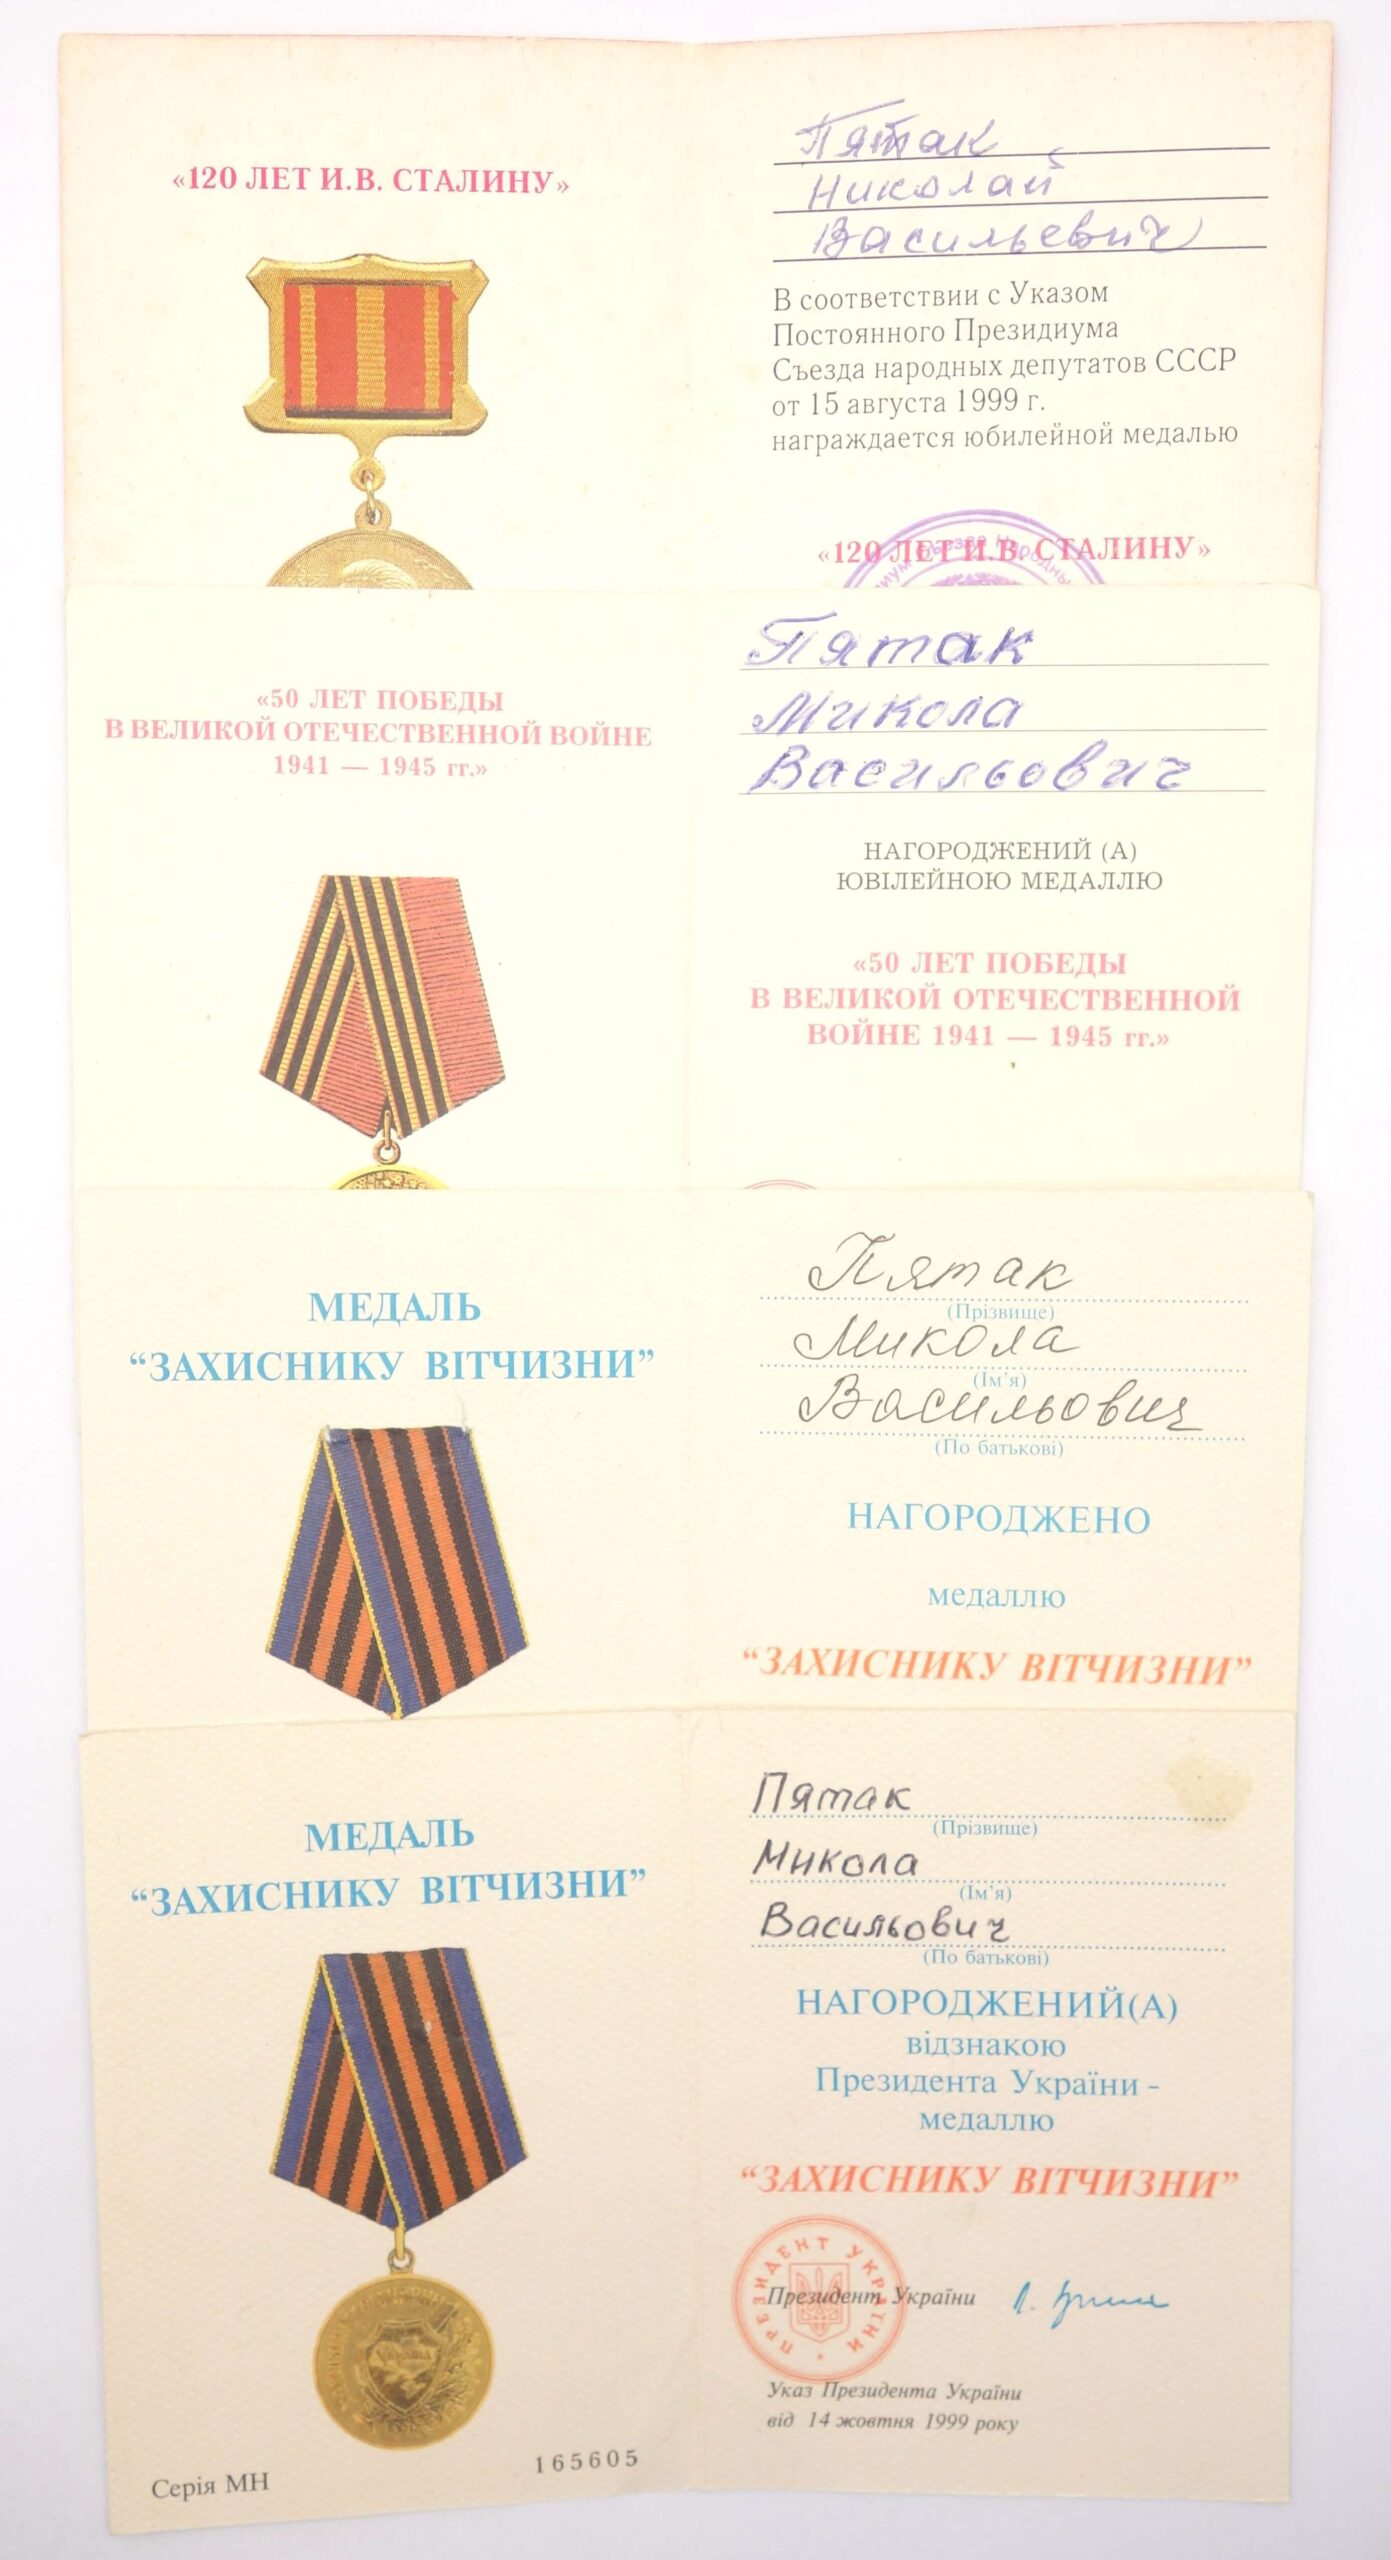 «120 ЛЕТ И.В. СТАЛИНУ»
Пятак
Николай
Васильевич
В соответствии с Указом
Постоянного Президиума
Съезда народных депутатов СССР
от 15 августа 1999 г.
награждается юбилейной медалью
«120 ЛЕТ И.В. СТАЛИНУ»
«50 ЛЕТ ПОБЕДЫ
В ВЕЛИКОЙ ОТЕЧЕСТВЕННОЙ ВОЙНЕ
1941 — 1945 гг.»
Пятак
Микола
Васильович
НАГОРОДЖЕНИЙ (А)
ЮВІЛЕЙНОЮ МЕДАЛЛЮ
«50 ЛЕТ ПОБЕДЫ
В ВЕЛИКОЙ ОТЕЧЕСТВЕННОЙ
ВОЙНЕ 1941 — 1945 гг.»
МЕДАЛЬ
“ЗАХИСНИКУ ВІТЧИЗНИ”
Пятак
(Прізвище)
Микола
(Ім’я)
Васильович
(По батькові)
НАГОРОДЖЕНО
медаллю
“ЗАХИСНИКУ ВІТЧИЗНИ”
МЕДАЛЬ
“ЗАХИСНИКУ ВІТЧИЗНИ”
Серія МН
165605
Пятак
(Прізвище)
Микола
(Ім’я)
Васильович
(По батькові)
НАГОРОДЖЕНИЙ(А)
відзнакою
Президента України -
медаллю
“ЗАХИСНИКУ ВІТЧИЗНИ”
ПРЕЗИДЕНТ УКРАЇНИ
Президент України
Указ Президента України
від 14 жовтня 1999 року